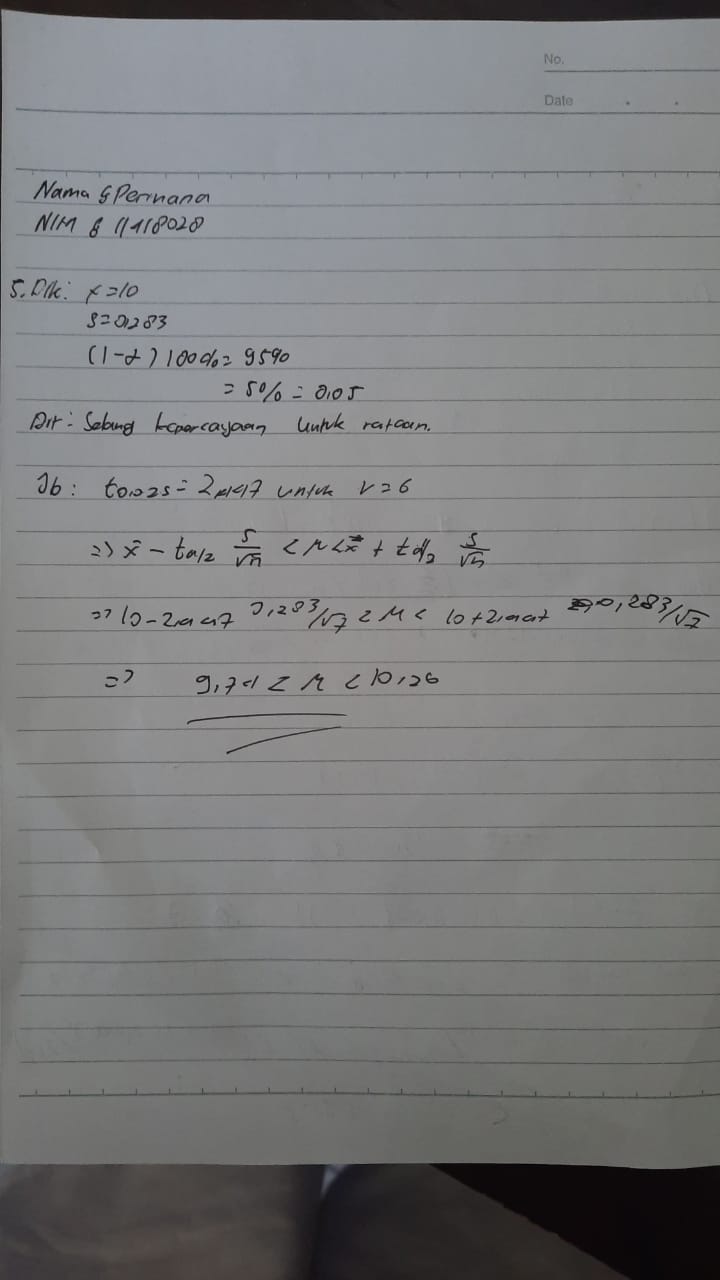 No.
Date
Nama : Permana
NIM : 11418028
5. Dik: x = 10
S = 0,283
(1-α) 100% = 95%
= 5% = 0,05
Dit : Selang kepercayaan untuk rataan.
Jb : t0,025 = 2,447 untuk V = 6
=> x̄ - tα/2 S/√n < μ < x̄ + tα/2 S/√n
=> 10 - 2,447 0,283/√7 < μ < 10 + 2,447 0,283/√7
=> 9,74 < μ < 10,26